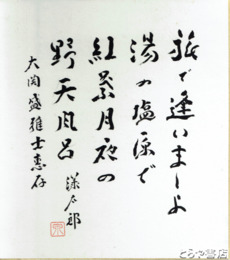 旅で逢いましよ
湯の塩原で
紅葉月夜の
野天風呂
大関盛雄士恵存
とらや書店